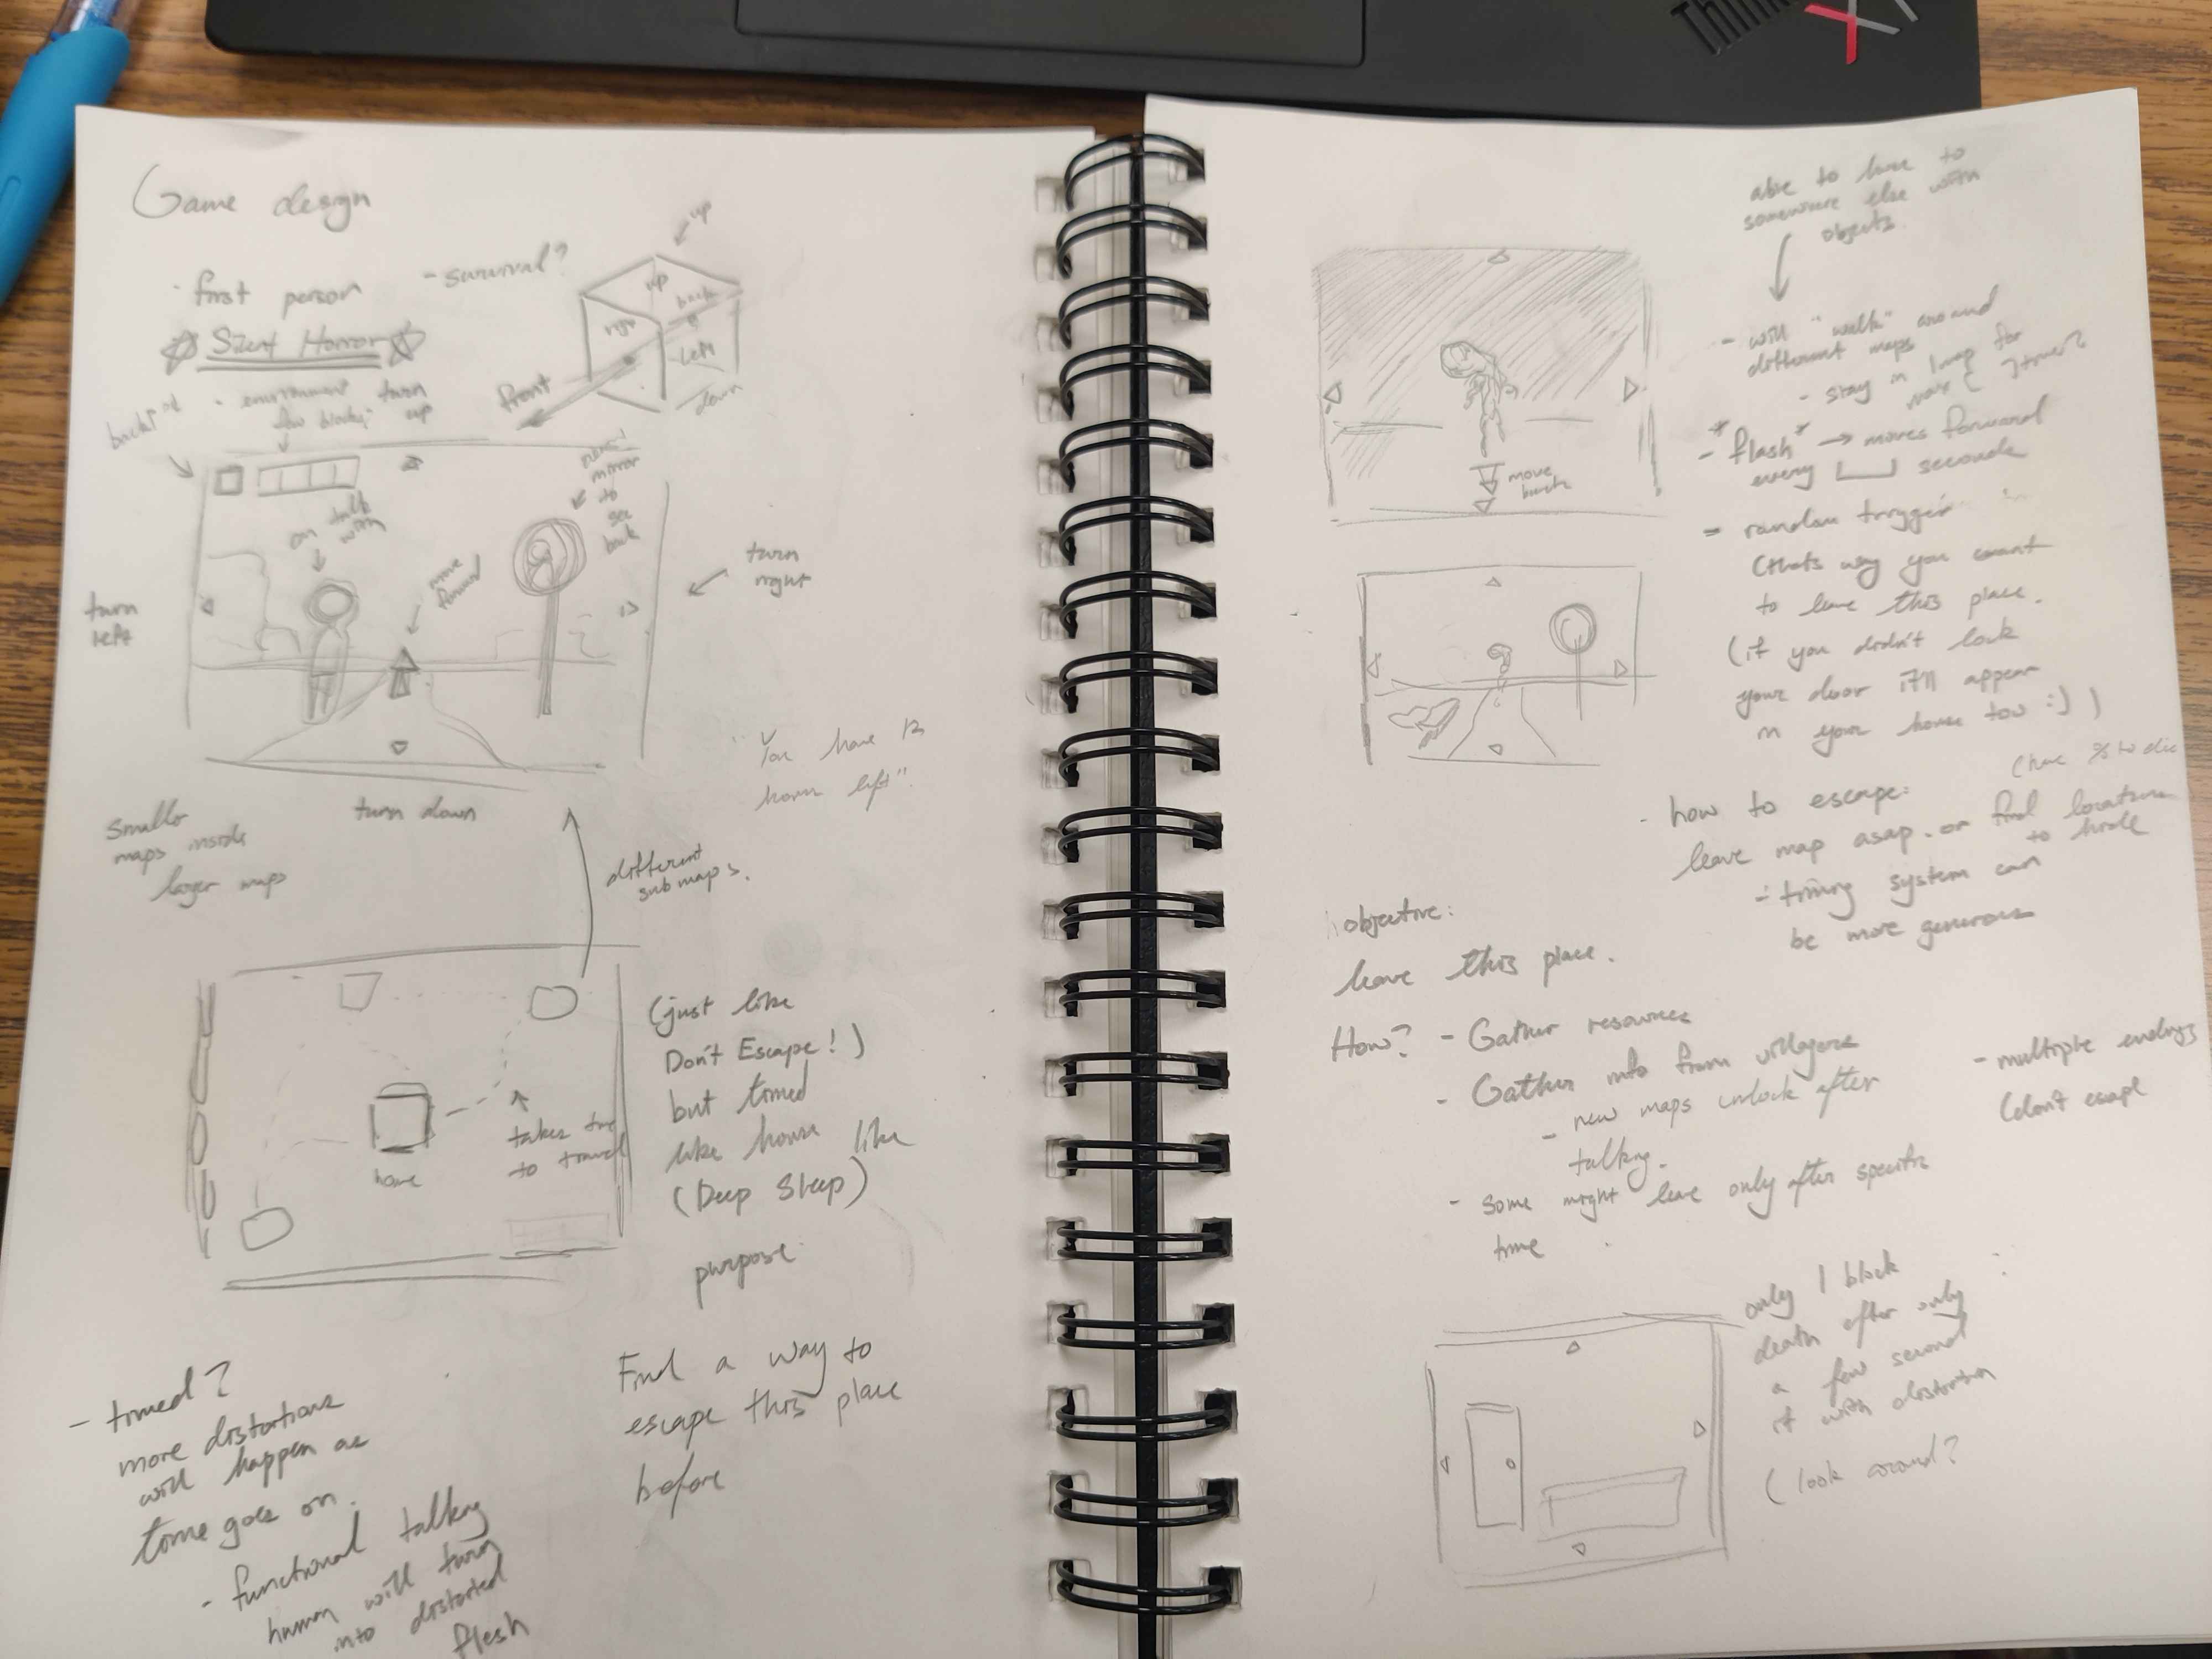 Think
X1
Game design
· first person
- survival?
Silent Horror
environment
turn
up
up
up
back
right
left
down
front
can talk
with
move
forward
need
mirror
to
see
back
turn
left
turn
right
turn down
"You have 12
hours left"
Smaller
maps inside
larger maps
different
submaps.
home
takes time
to travel
(just like
Don't Escape!)
but timed
like house like
(Deep Sleep)
purpose
Find a way to
escape this place
before
- timed?
more distortions
will happen as
time goes on.
- functional talking
human will turn
into distorted
flesh
able to lure to
somewhere else with
objects.
- will "walk" around
different maps
- stay in 1 map for
more (
*flash* → moves forward
every seconds
move
back
= random trigger
(thats why you want
to leave this place.
(if you didn't lock
your door it'll appear
in your house too :) )
(have % to die
- how to escape:
leave map asap. or find locations
to hide
- timing system can
be more generous
objective:
leave this place.
How? - Gather resources
- Gather info from villagers
- new maps unlock after
talking.
- some might leave only after specific
time
- multiple endings
(don't escape
only 1 block
death after only
a few second
if with distortion
(look around?